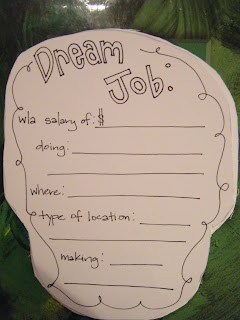 Dream
Job:
w/a salary of: $
doing:
where:
type of location:
making: